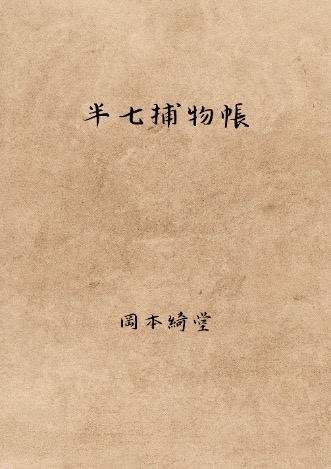 半七捕物帳
岡本綺堂